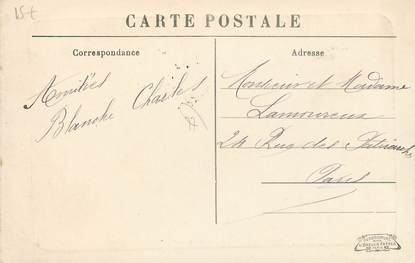 15t
CARTE POSTALE
Correspondance
Adresse
Amitiés
Blanche Charles
Monsieur et Madame
Lamoureux
24 Rue des
Paris